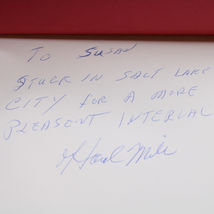 TO SUSAN
STUCK IN SALT LAKE
CITY FOR A MORE
PLEASENT INTERVAL